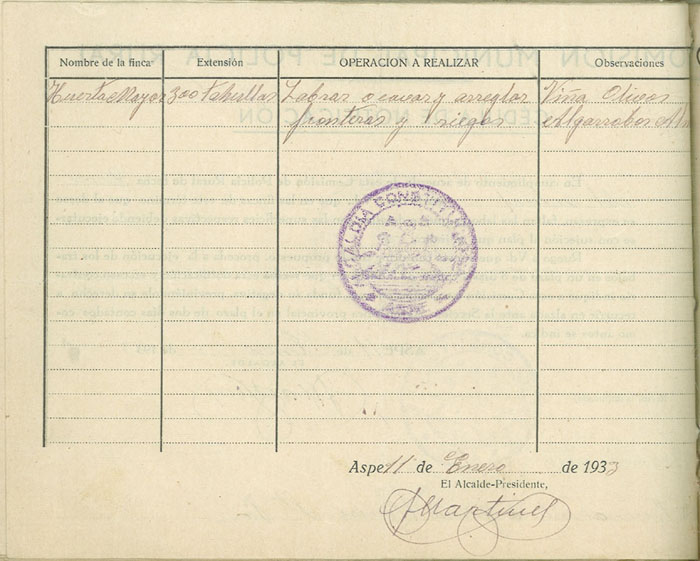 Nombre de la finca Extensión OPERACION A REALIZAR Observaciones
Huerta Mayor 300 tahullas Labrar o cavar y arreglar Viña Olivos
fronteras y riegos Algarrobos
ALCALDIA CONSTITUCIONAL
ASPE
Aspe 11 de Enero de 1933
El Alcalde-Presidente,
AMartinez